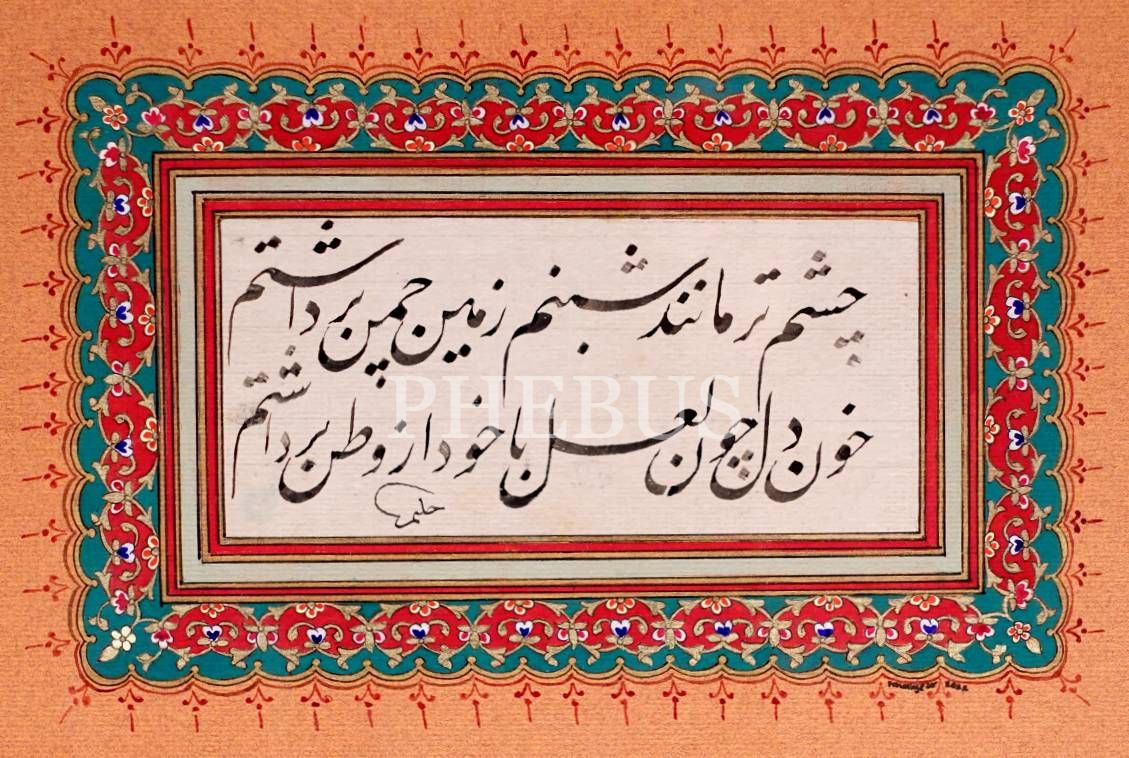 چشم تر مانند شبنم زمین چمن برداشتم
خون دل چون لعل با خود از وطن برداشتم
PHEBUS